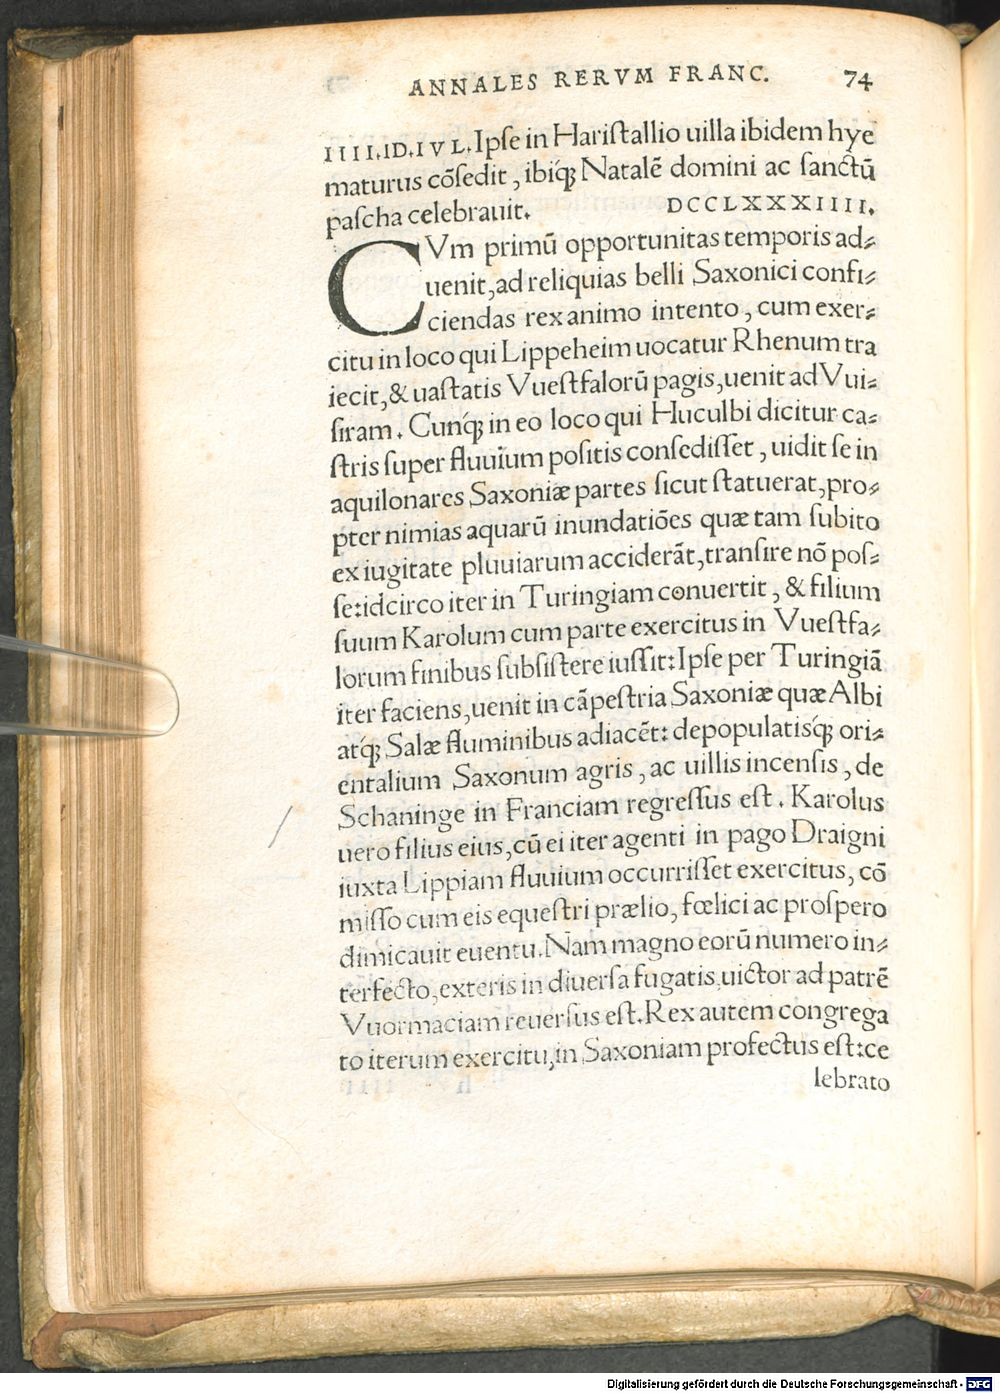 ANNALES RERVM FRANC. 74
IIII.ID.IVL.Ipſe in Hariſtallio uilla ibidem hye
maturus cõſedit, ibiq́ꝫ Natalẽ domini ac ſanctũ
paſcha celebrauit. DCCLXXXIIII.
CVm primũ opportunitas temporis ad⸗
uenit, ad reliquias belli Saxonici confi⸗
ciendas rex animo intento, cum exer⸗
citu in loco qui Lippeheim uocatur Rhenum tra
iecit, & uaſtatis Vueſtfalorũ pagis, uenit ad Vui⸗
ſiram. Cunq́ꝫ in eo loco qui Huculbi dicitur ca⸗
ſtris ſuper fluuium poſitis conſediſſet, uidit ſe in
aquilonares Saxoniæ partes ſicut ſtatuerat, pro⸗
pter nimias aquarũ inundatiões quæ tam ſubito
ex iugitate pluuiarum acciderãt, tranſire nõ poſ⸗
ſe: idcirco iter in Turingiam conuertit, & filium
ſuum Karolum cum parte exercitus in Vueſtfa⸗
lorum finibus ſubſiſtere iuſſit: Ipſe per Turingiã
iter faciens, uenit in cãpeſtria Saxoniæ quæ Albi
atq́ꝫ Salæ fluminibus adiacẽt: depopulatisq́ꝫ ori⸗
entalium Saxonum agris, ac uillis incenſis, de
Schaninge in Franciam regreſſus eſt. Karolus
uero filius eius, cũ ei iter agenti in pago Draigni
iuxta Lippiam fluuium occurriſſet exercitus, cõ
miſſo cum eis equeſtri prælio, fœlici ac proſpero
dimicauit euentu. Nam magno eorũ numero in⸗
terfecto, exteris in diuerſa fugatis, uictor ad patrẽ
Vuormaciam reuerſus eſt. Rex autem congrega
to iterum exercitu, in Saxoniam profectus eſt: ce
lebrato
Digitalisierung gefördert durch die Deutsche Forschungsgemeinschaft - DFG